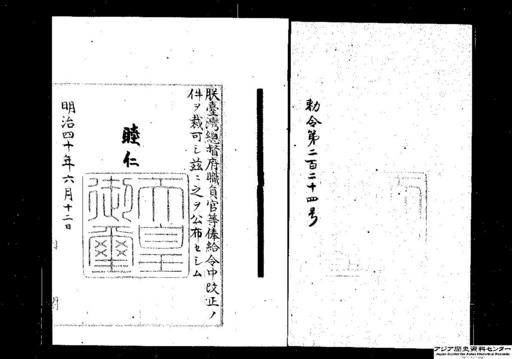 勅令第二百二十四号
朕臺灣總督府職員官等俸給令中改正ノ
件ヲ裁可シ玆ニ之ヲ公布セシム
睦仁
天皇
御璽
明治四十年六月十二日
アジア歴史資料センター
Japan Center for Asian Historical Records